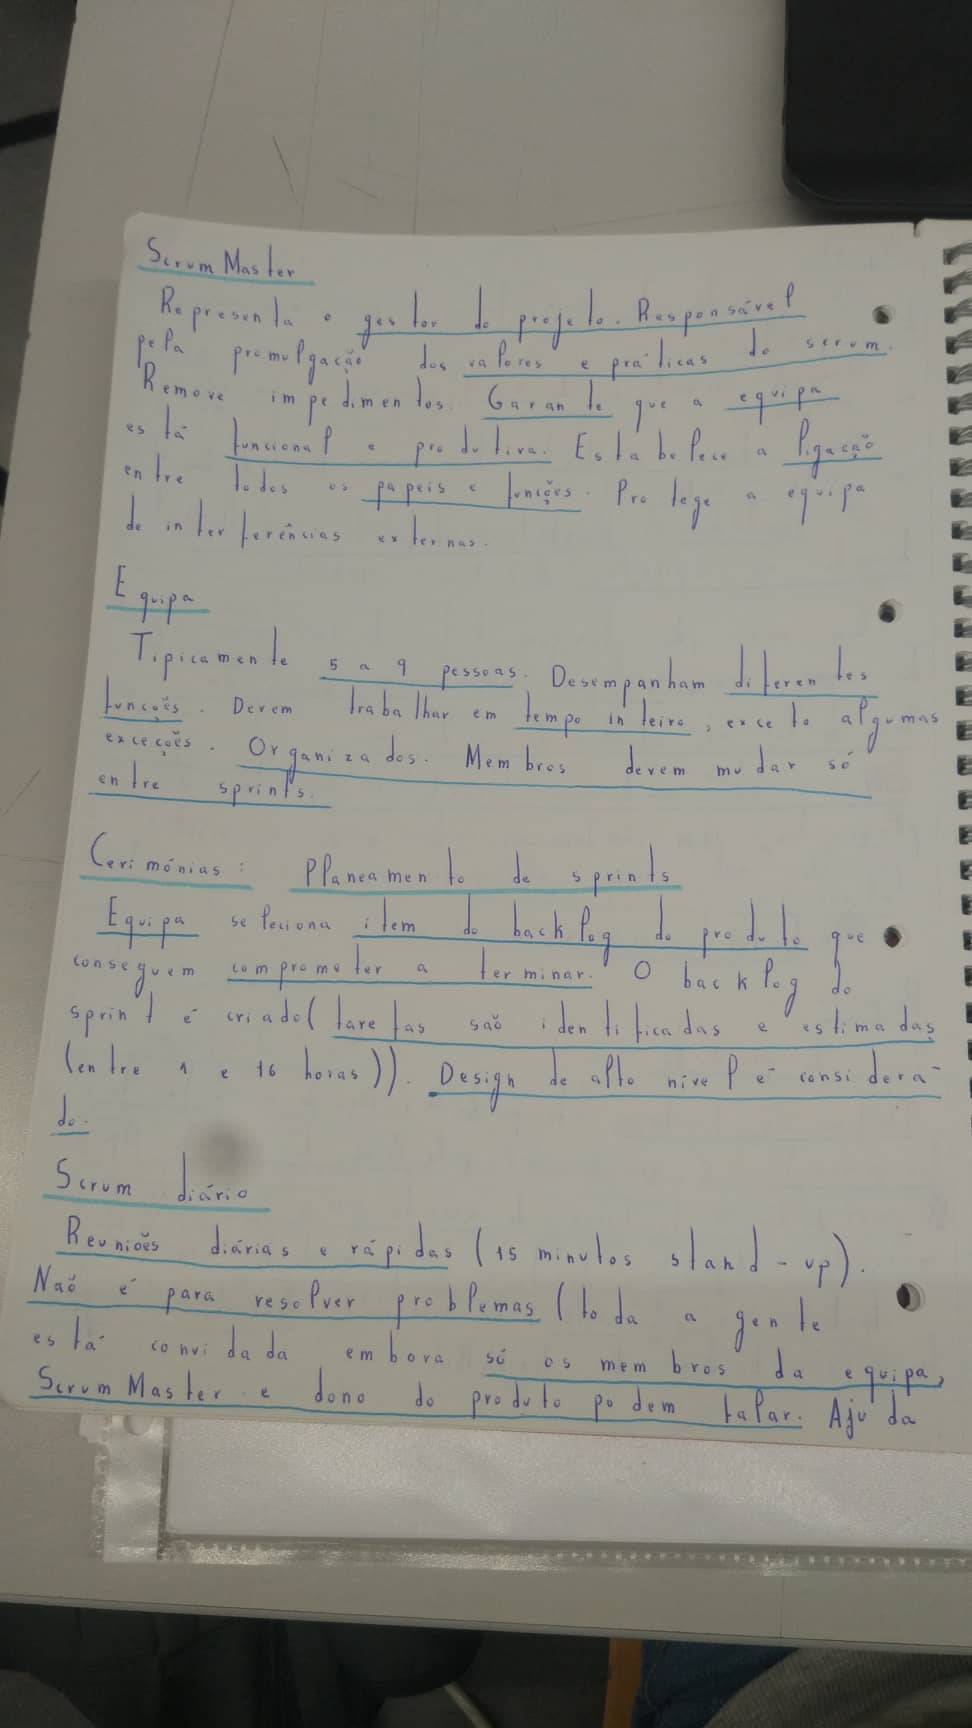 Scrum Master
Representa o gestor do projeto. Responsável
pela promulgação dos valores e práticas do scrum.
Remove impedimentos. Garante que a equipa
está funcional e produtiva. Estabelece a ligação
entre todos os papeis e funções. Protege a equipa
de interferências externas.
Equipa
Tipicamente 5 a 9 pessoas. Desempanham diferentes
funções. Devem trabalhar em tempo inteiro, exceto algumas
exceções. Organizados. Membros devem mudar só
entre sprints.
Cerimónias: Planeamento de sprints
Equipa seleciona item do backlog do produto que
conseguem comprometer a terminar. O backlog do
sprint é criado (tarefas são identificadas e estimadas
(entre 1 e 16 horas)). Design de alto nível é considera-
do.
Scrum diário
Reuniões diárias e rápidas (15 minutos stand-up).
Não é para resolver problemas (toda a gente
está convidada embora só os membros da equipa,
Scrum Master e dono do produto podem falar. Ajuda